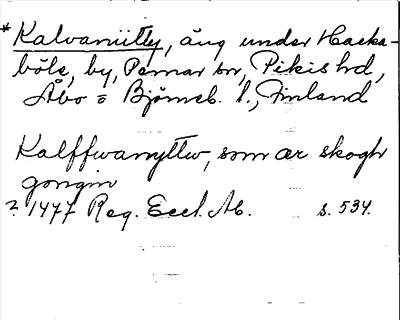 * Kalvaniitty, äng under Hacka-
böle, by, Pemar sn, Pikis hd,
Åbo o Björneb. l., Finland
Kalffwanyttw, som ær skogh
gongin
? 1477 Reg. Eccl. Ab. s. 534.